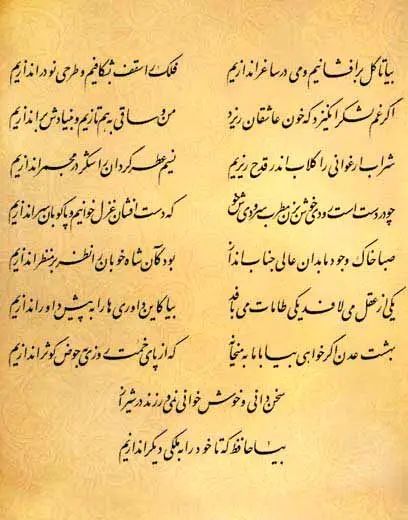 بیا تا گل برافشانیم و می در ساغر اندازیم فلک را سقف بشکافیم و طرحی نو در اندازیم
اگر غم لشکر انگیزد که خون عاشقان ریزد من و ساقی بهم تازیم و بنیادش براندازیم
شراب ارغوانی را گلاب اندر قدح ریزیم نسیم عطر گردان را شکر در مجمر اندازیم
چو در دست است رودی خوش بزن مطرب سرودی خوش که دست افشان غزل خوانیم و پاکوبان سر اندازیم
صبا خاک وجود ما بدان عالی جناب انداز بود کان شاه خوبان را نظر بر منظر اندازیم
یکی از عقل می لافد یکی طامات می بافد بیا کاین داوری ها را به پیش داور اندازیم
بهشت عدن گر خواهی بیا با ما به میخانه که از پای خمت روزی به حوض کوثر اندازیم
سخن دانی و خوش خوانی نمی ورزند در شیراز
بیا حافظ که تا خود را به ملکی دیگر اندازیم